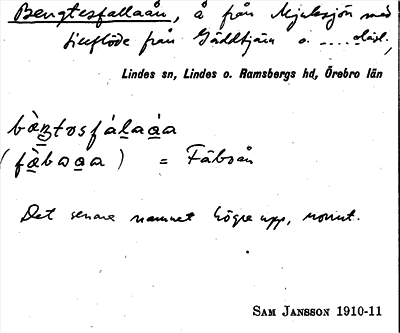 Bengtesfallaån, å från Mjulksjön med
tillflöde från Gäddtjärn o.
Lindes sn, Lindes o. Ramsbergs hd, Örebro län
bæŋtosfálaáa
(fæ̀boaa) = Fäboån
Det senare namnet högre upp, norrut.
SAM JANSSON 1910-11